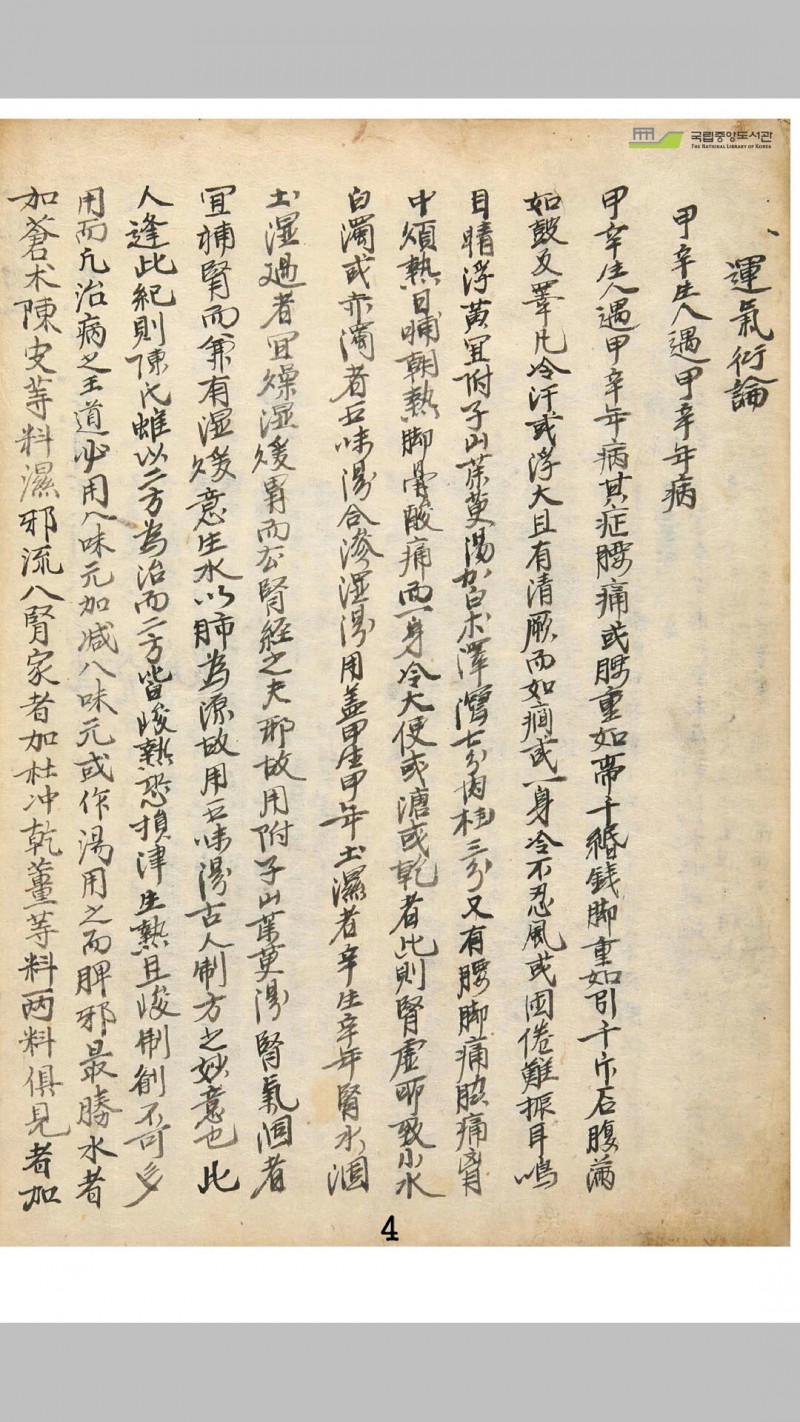 국립중앙도서관
THE NATIONAL LIBRARY OF KOREA
運氣衍論
甲辛生人遇甲辛年病
甲辛生人遇甲辛年病其症腰痛或腰重如帶千緡錢脚重如引千斤石腹滿
如鼓及睪丸冷汗或浮大且有清厥而如癎或一身冷不忍風或困倦難振耳鳴
目睛浮黃宜附子山茱萸湯加白朮澤瀉七分肉桂三分又有腰脚痛脇痛胸
中煩熱日晡朝熱脚骨酸痛而一身冷大便或溏或乾者此則腎虛所致小水
白濁或赤濁者五味湯合滲湿湯用盖甲生甲年土濕者辛生辛年腎水涸
土湿過者宜燥湿煖胃而公腎経之夫邪故用附子山茱萸湯腎氣涸者
宜補腎而兼有湿煖意生水以肺為源故用五味湯古人制方之妙意也此
人逢此紀則陳氏雖以二方為治而二方皆峻熱恐損津生熱且峻制創不可多
用而凡治病之王道必用八味元加减八味元或作湯用之而脾邪最勝水者
加蒼朮陳皮䓁料濕邪流入腎家者加杜冲乾薑䓁料两料俱見者加
4